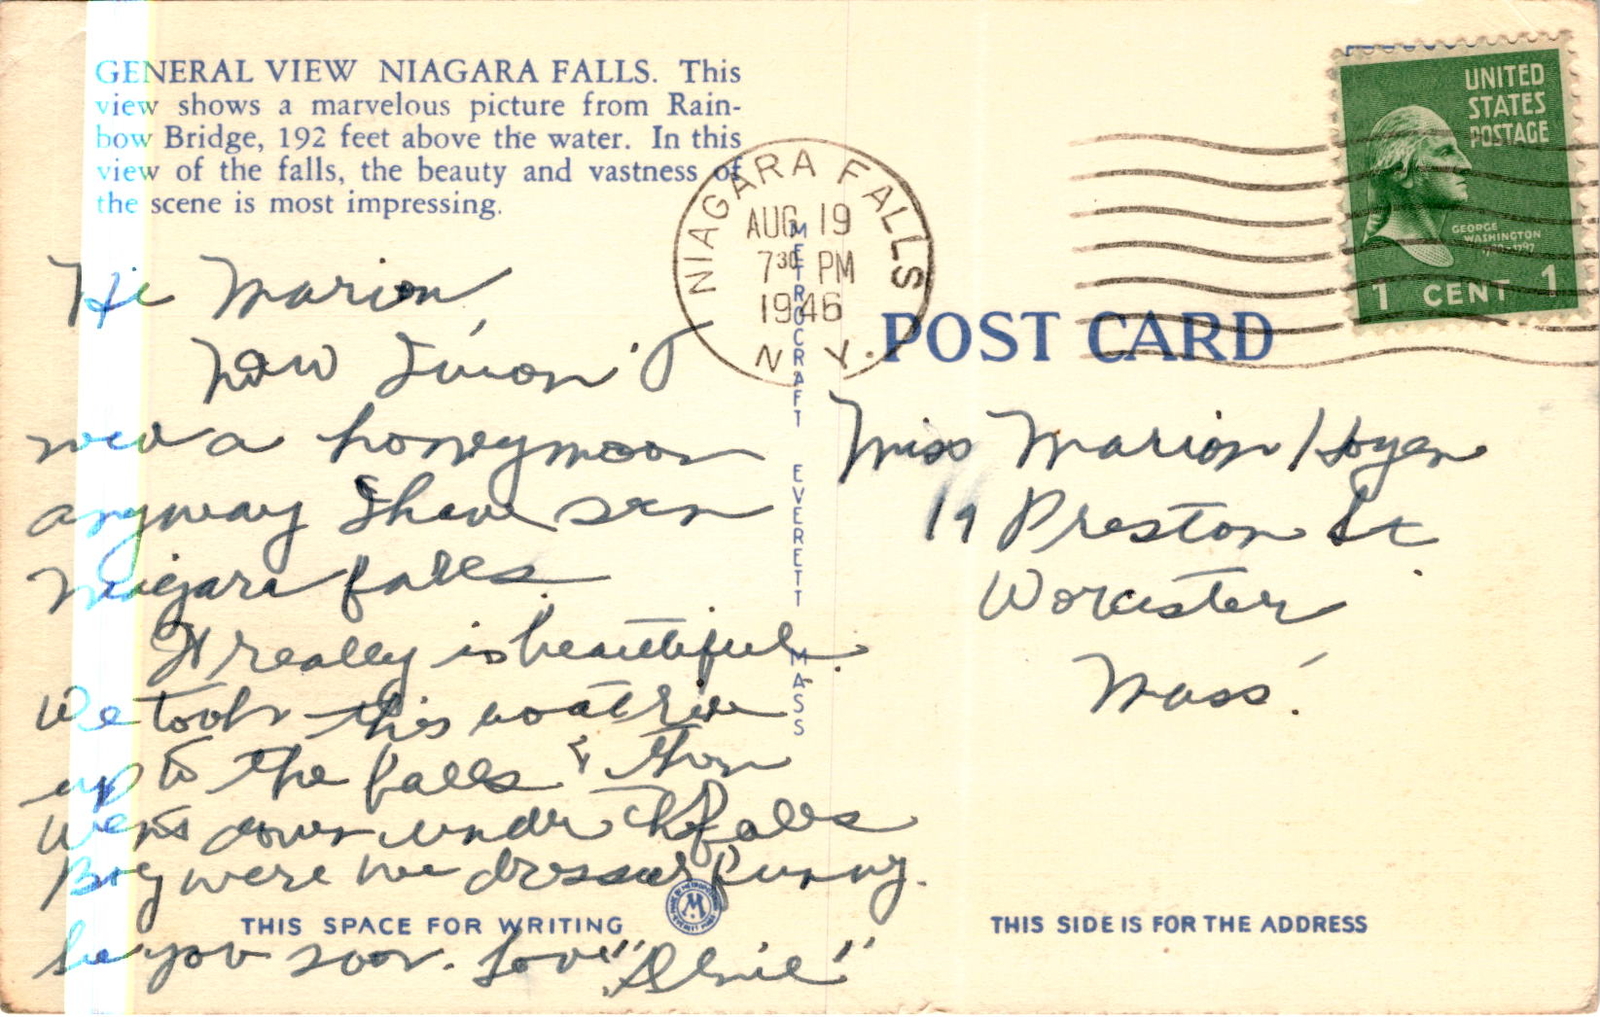 GENERAL VIEW NIAGARA FALLS. This
view shows a marvelous picture from Rain-
bow Bridge, 192 feet above the water. In this
view of the falls, the beauty and vastness of
the scene is most impressing.
NIAGARA FALLS
AUG 19
7 30 PM
1946
N. Y.
UNITED
STATES
POSTAGE
GEORGE
WASHINGTON
1 CENT 1
POST CARD
METROCRAFT EVERETT MASS
Hi Marion,
Now I'm on
a honeymoon
anyway I have seen
Niagara falls.
It really is beautiful.
We took this boat ride
up to the falls & then
went down under the falls
Boy were we dressed funny.
THIS SPACE FOR WRITING
See you soon. Love
Miss Marion Hoyen
19 Preston St
Worcester
Mass.
THIS SIDE IS FOR THE ADDRESS